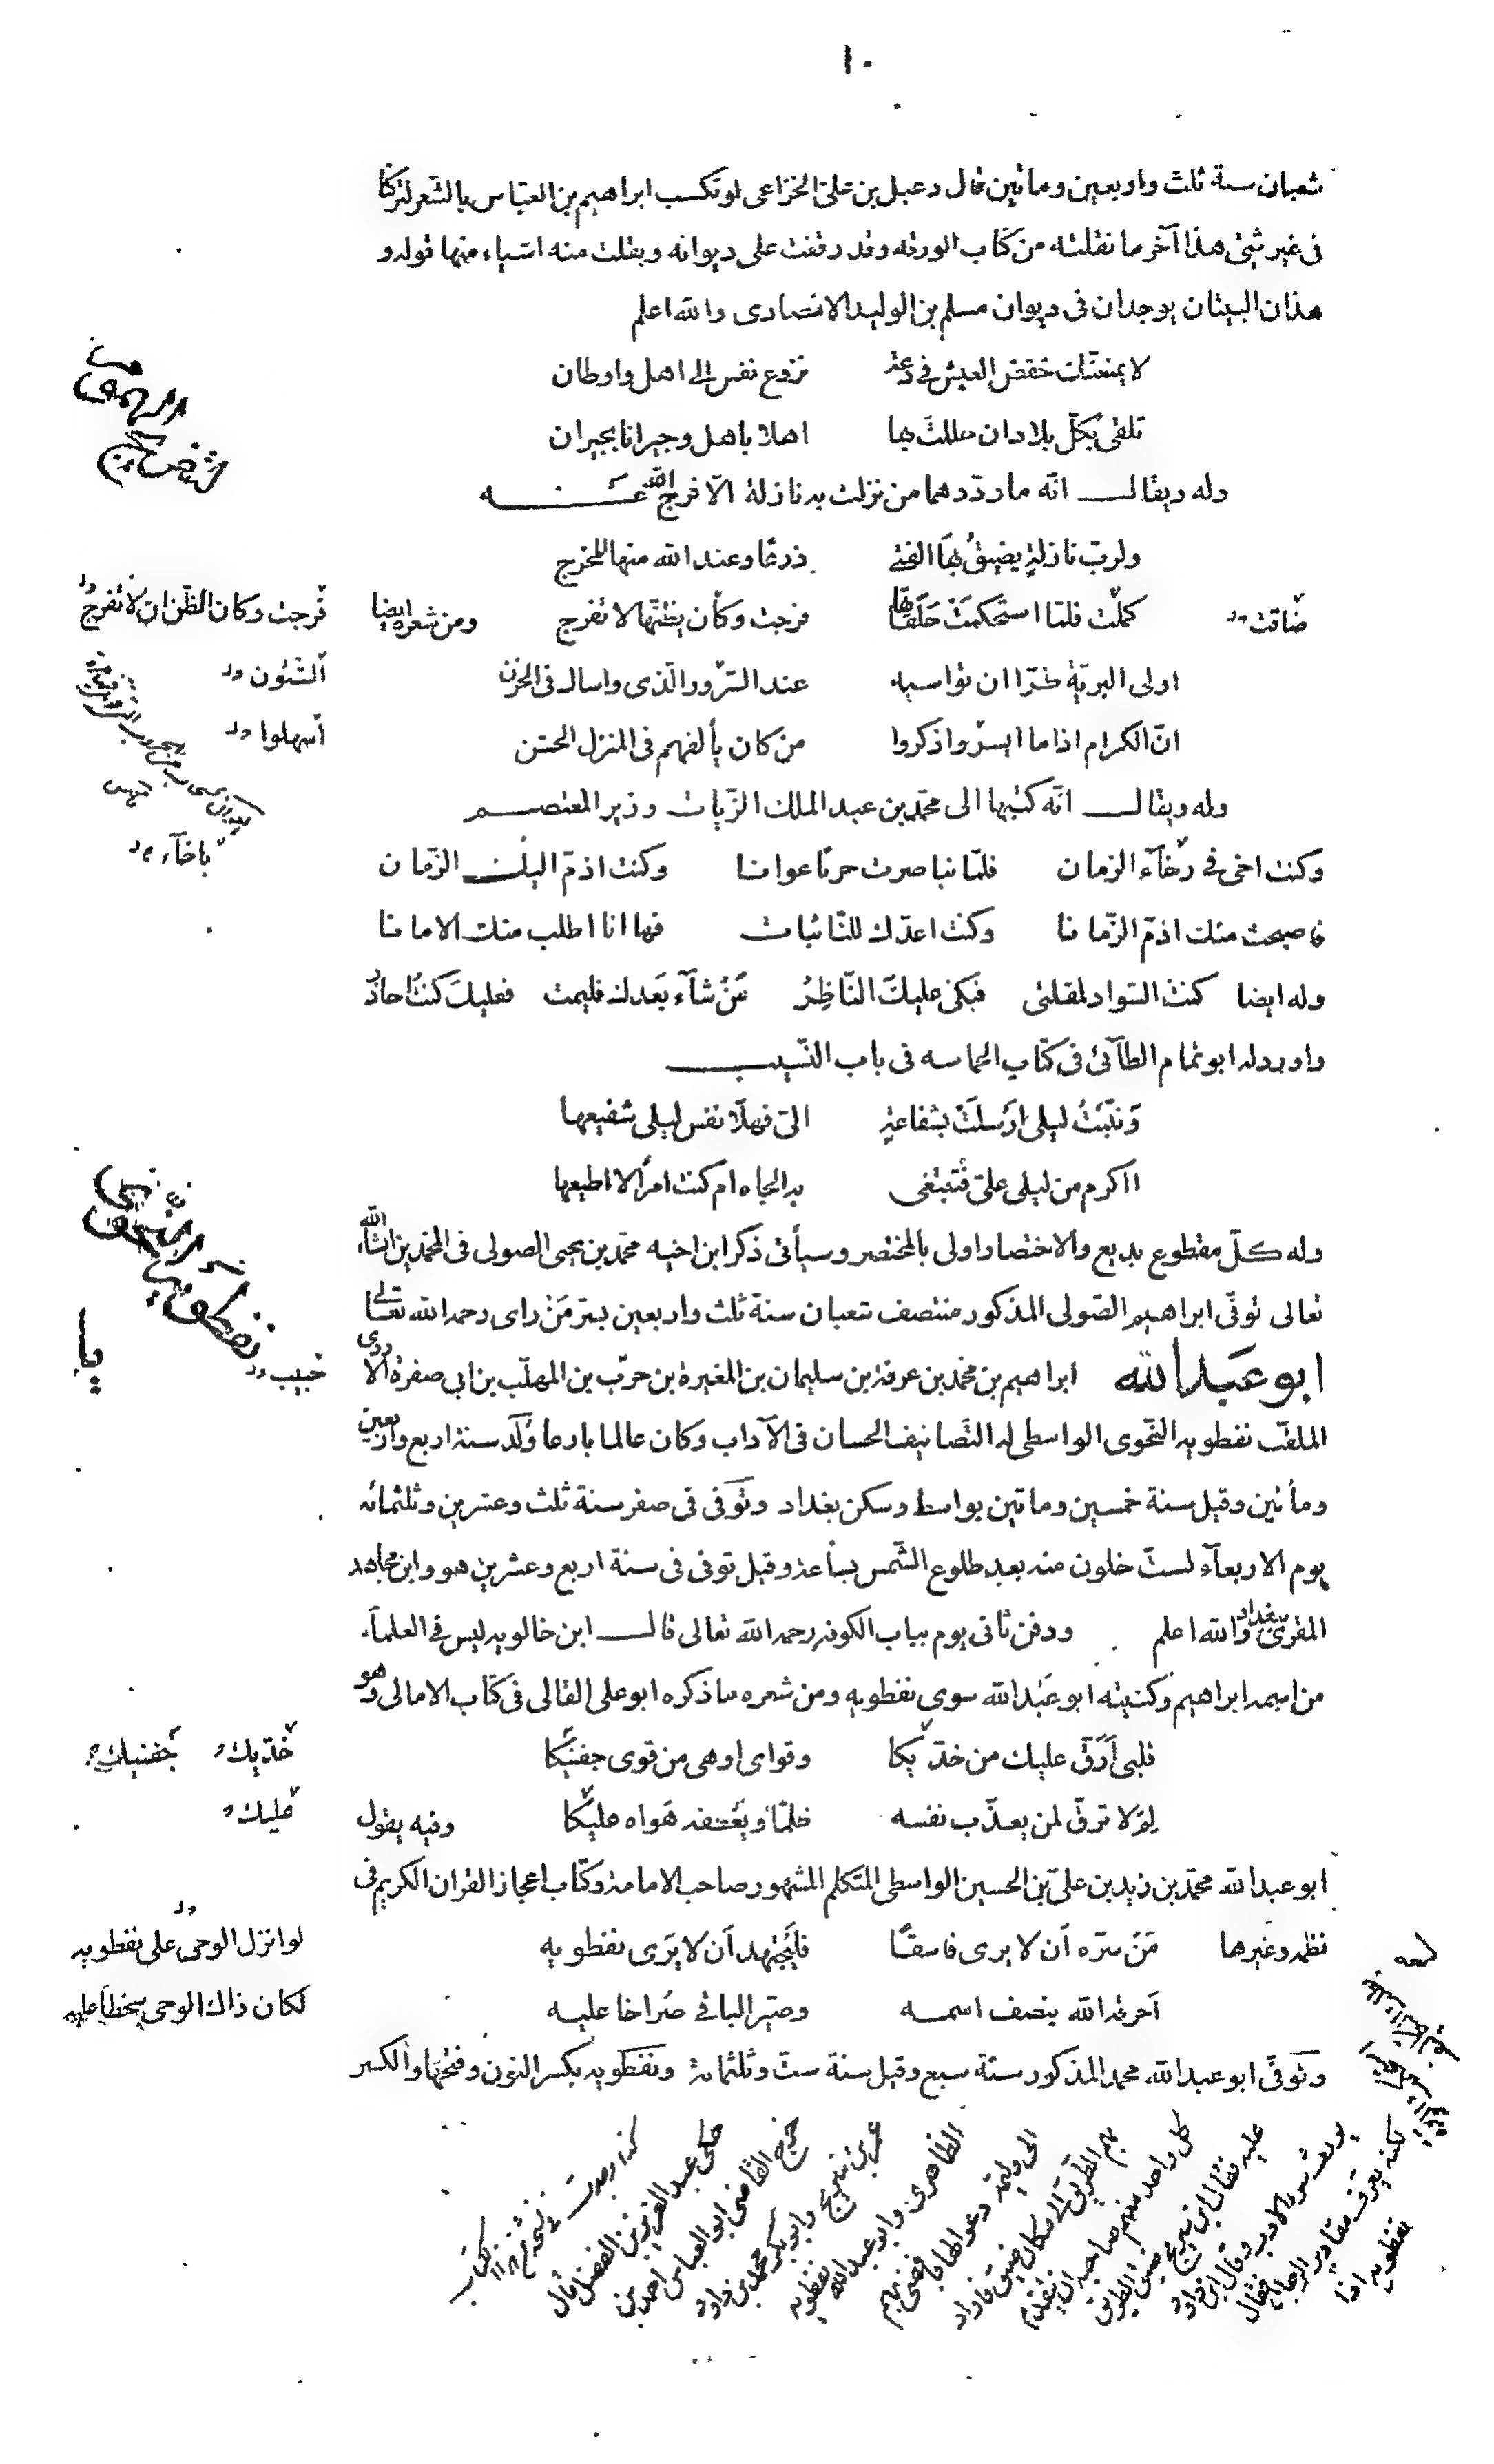 ١٠
شعبان سنة ثلث واربعين وماتين قال دعبل بن على الخزاعى لو تكسب ابراهيم بن العباس بالشعر لتركنا
فى غير شئ هذا آخر ما نقلته من كتاب الورقه وقد وقفت على ديوانه ونقلت منه اشياء منها قوله و
هذان البيتان يوجدان فى ديوان مسلم بن الوليد الانصارى والله اعلم
لا يمنعنك خفض العيش فى دعة نزوع نفس الى اهل واوطان
تلقى بكل بلاد ان حللت بها اهلا باهل وجيرانا بجيران
وله ويقال انه ما رددهما من نزلت به نازلة الا فرج الله عنه
ولرب نازلة يضيق بها الفتى ذرعا وعند الله منها المخرج
كملت فلما استحكمت حلقاتها فرجت وكان يظنها لا تفرج ومن شعره ايضا
ضاقت
فرجت وكان الظن ان لا تفرج
اولى البرية طرا ان تواسيه عند السرور الذى واساك فى الحزن
الشئون
ان الكرام اذا ما ايسروا ذكروا من كان يألفهم فى المنزل الخشن
اسهلوا
وله ويقال انه كتبها الى محمد بن عبد الملك الزيات وزير المعتصم
وكنت اخى فى رخآء الزمان فلما نبا صرت حربا عوانا وكنت اذم اليك الزمان
باخآء
فاصبحت منك اذم الزمانا وكنت اعدك للنائبات فها انا اطلب منك الامانا
وله ايضا كنت السواد لمقلتى فبكى عليك الناظر من شآء بعدك فليمت فعليك كنت احاذر
واورد له ابو تمام الطآئى فى كتاب الحماسه فى باب النسيب
ونبئت ليلى ارسلت بشفاعة الى فهلا نفس ليلى شفيعها
ااكرم من ليلى على فتبتغى به الجاه ام كنت امرأ لا اطيعها
وله كل مقطوع بديع والاختصار اولى بالمختصر وسيأتى ذكر ابن اخيه محمد بن يحيى الصولى فى المحمدين انشاء الله
تعالى توفى ابراهيم الصولى المذكور منتصف شعبان سنة ثلث واربعين بسر من راى رحمه الله تعالى
ابو عبد الله ابراهيم بن محمد بن عرفة بن سليمان بن المغيرة بن حرب بن المهلب بن ابى صفرة الازدى
حبيب
الملقب نفطويه النحوى الواسطى له التصانيف الحسان فى الآداب وكان عالما بارعا ولد سنة اربع واربعين
ومأتين وقيل سنة خمسين وماتين بواسط وسكن بغداد وتوفى فى صفر سنة ثلث وعشرين وثلثمائه
يوم الاربعآء لست خلون منه بعد طلوع الشمس بساعة وقيل توفى فى سنة اربع وعشرين هو وابن مجاهد
المقرئ ببغداد والله اعلم ودفن ثانى يوم بباب الكوفه رحمه الله تعالى قال ابن خالويه ليس فى العلمآء
من اسمه ابراهيم وكنيته ابو عبد الله سوى نفطويه ومن شعره ما ذكره ابو على القالى فى كتاب الامالى وهو
قلبى ارق عليك من خديكا وقواى اوهى من قوى جفنيكا
خديك جفنيك
لم لا ترق لمن يعذب نفسه ظلما ويعطفه هواه عليكا وفيه يقول
عليك
ابو عبد الله محمد بن زيد بن على بن الحسين الواسطى المتكلم المشهور صاحب الامامة وكتاب اعجاز القران الكريم فى
نظمه وغيرها من سره ان لا يرى فاسقا فليجتهد ان لا يرى نفطويه
لو انزل الوحى على نفطويه
احرقه الله بنصف اسمه وصير الباقى صراخا عليه
لكان ذاك الوحى سخطا عليه
وتوفى ابو عبد الله محمد المذكور سنة سبع وقيل سنة ست وثلثمائة ونفطويه بكسر النون وفتحها والكسر
حكى عبد العزيز بن الفضل قال
خرج القاضى ابو العباس احمد بن
عمر بن سريج وابو بكر محمد بن داود
الظاهرى وابو عبد الله نفطويه
الى وليمة دعوا لها فافضى بهم
بهم الطريق الى مكان ضيق فاراد
كل واحد منهم صاحبه ان يتقدم
عليه فقال ابن سريج ضيق الطريق
يورث سوء الادب وقال ابن داود
لكنه يعرف مقادير الرجال فقال
نفطويه اذا